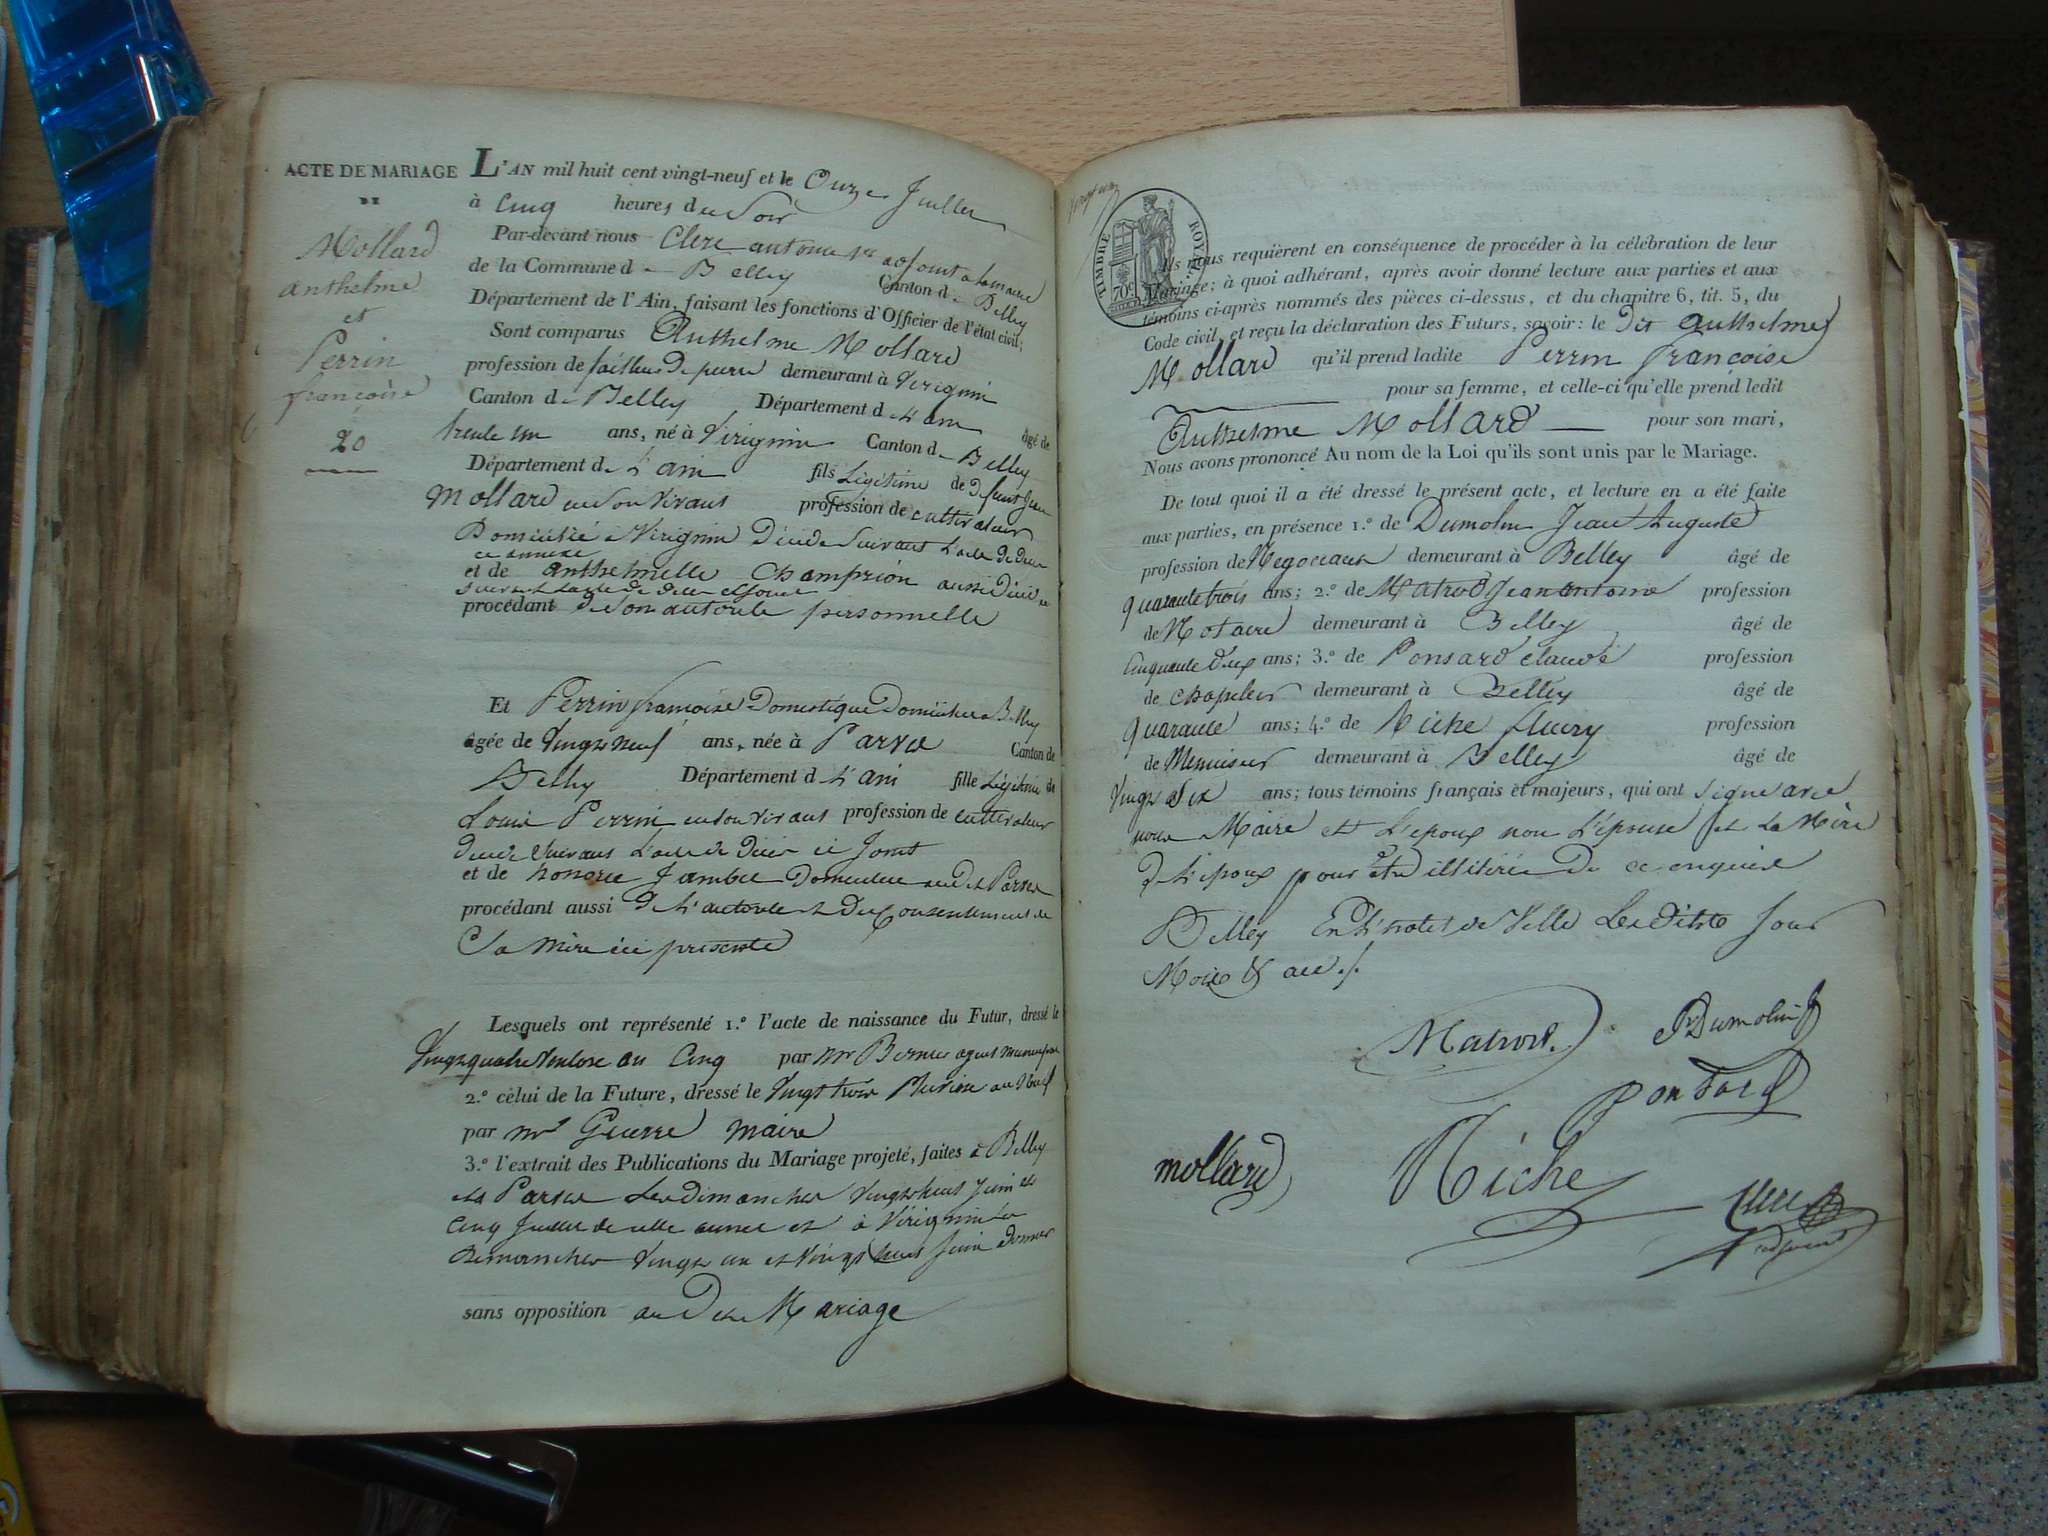 ACTE DE MARIAGE
DE
Mollard
anthelme
et
Perrin
françoise
20
L'AN mil huit cent vingt-neuf et le Onze Juillet
à Cinq heures du Soir
Par-devant nous Clerc antoine 1er adjoint a la mairie
de la Commune de Belley Canton de Belley
Département de l'Ain, faisant les fonctions d'Officier de l'état civil;
Sont comparus Anthelme Mollard
profession de tailleur de pierre demeurant à Virignin
Canton de Belley Département de L'ain âgé de
trente un ans, né à Virignin Canton de Belley
Département de L'ain fils Légitime de defunt Jean
Mollard en son vivant profession de cultivateur
Domicilié a Virignin Décédé Suivant L'acte de décès
ci annexé
et de anthelmette Champion aussi Décédée
Suivant L'acte de décès
procédant de son autorité personnelle
Et Perrin françoise Domestique Domiciliée a Belley
âgée de Vingt neuf ans, née à Parve Canton de
Belley Département de L'ain fille Légitime de
Louis Perrin en son vivant profession de cultivateur
décédé Suivant L'acte de décès ci Joint
et de honorée Jambet Domiciliée audit Parve
procédant aussi de L'autorité et du Consentement de
Sa Mère ici présente
Lesquels ont représenté 1.º l'acte de naissance du Futur, dressé le
Vingt quatre Ventose an Cinq par Mr Bernier agent municipal
2.º celui de la Future, dressé le Vingt trois Pluviose an Neuf
par Mr Guerre Maire
3.º l'extrait des Publications du Mariage projeté, faites à Belley
et a Parve Les dimanches Vingt huit Juin et
Cinq Juillet de cette année et à Virignin les
Dimanches Vingt un et Vingt huit Juin
sans opposition au Dit Mariage
TIMBRE ROYAL
70c
Ils nous requièrent en conséquence de procéder à la célébration de leur
Mariage; à quoi adhérant, après avoir donné lecture aux parties et aux
témoins ci-après nommés des pièces ci-dessus, et du chapitre 6, tit. 5, du
Code civil, et reçu la déclaration des Futurs, savoir: le Dit Anthelme
Mollard qu'il prend ladite Perrin françoise
pour sa femme, et celle-ci qu'elle prend ledit
Anthelme Mollard pour son mari,
Nous avons prononcé Au nom de la Loi qu'ils sont unis par le Mariage.
De tout quoi il a été dressé le présent acte, et lecture en a été faite
aux parties, en présence 1.º de Dumolin Jean Auguste
profession de Negociant demeurant à Belley âgé de
quarante trois ans; 2.º de Matrod Jean antoine profession
de Notaire demeurant à Belley âgé de
Cinquante deux ans; 3.º de Ponsard claude profession
de chapelier demeurant à Belley âgé de
quarante ans; 4.º de Riche fleury profession
de Menuisier demeurant à Belley âgé de
Vingt Six ans; tous témoins français et majeurs, qui ont signé avec
nous Maire et L'epoux non L'épouse et La Mère
de L'epoux pour être illitérées De ce enquises
Belley En L'hotel de Ville Les dits Jour
Mois & an ./.
Matrod
Dumolin
Ponsard
mollard
Riche
Clerc
adjoint